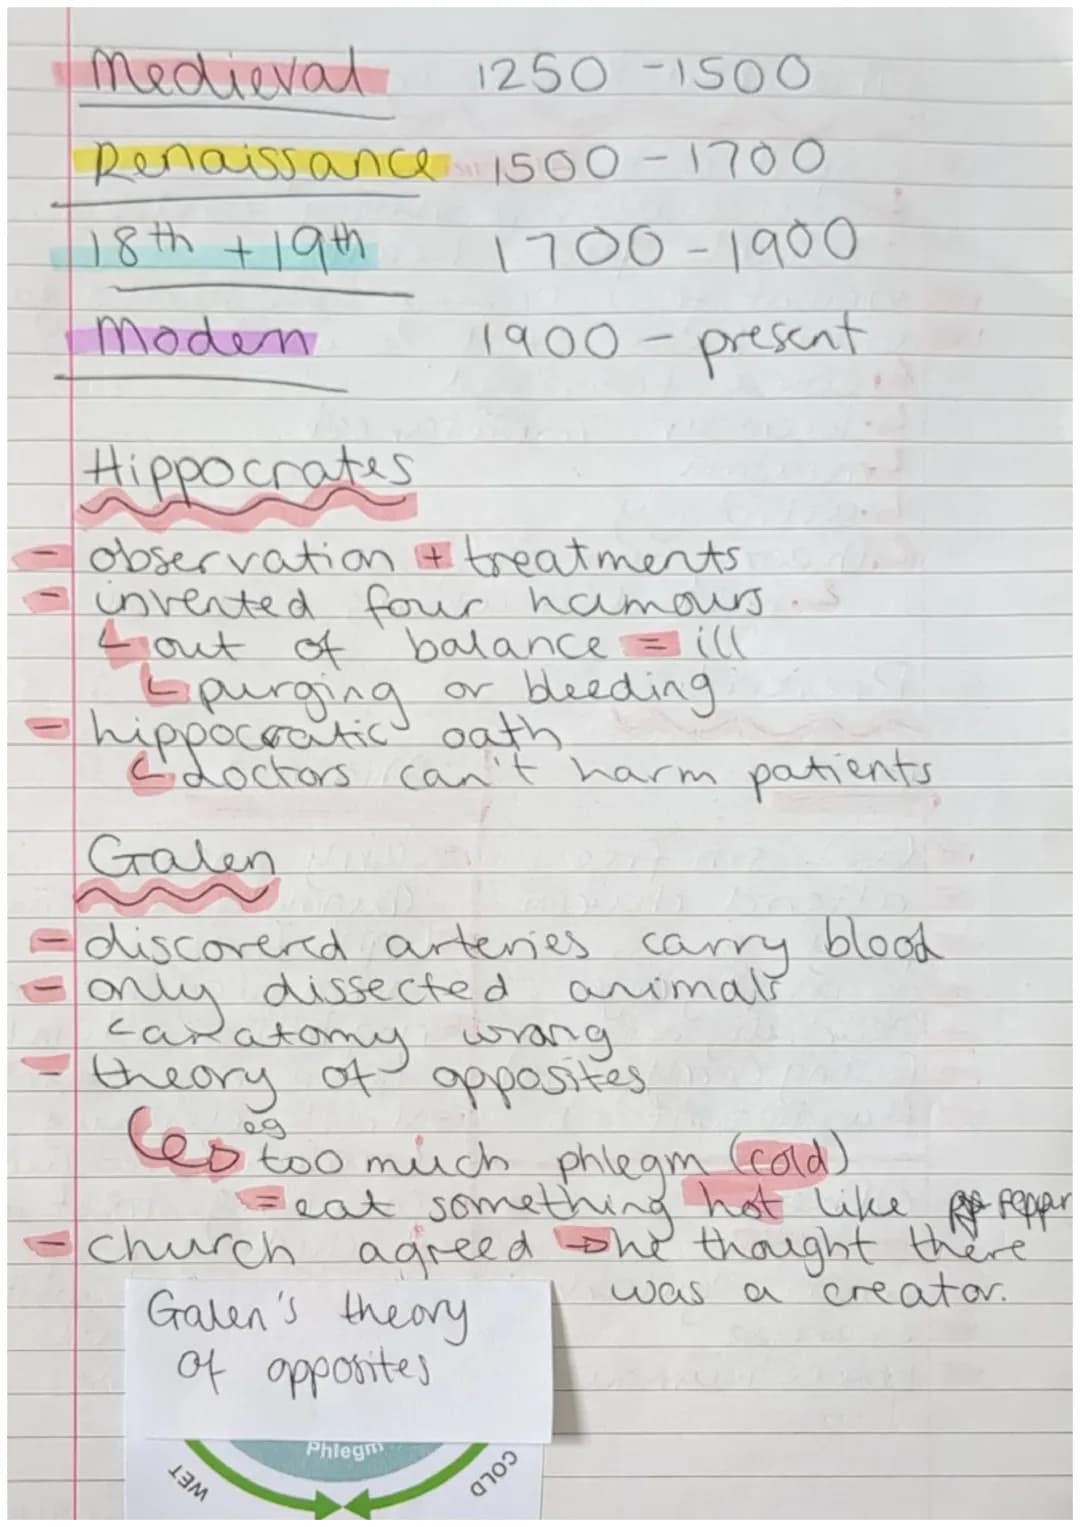 Medieval 1250 - 1500
Renaissance 1500 - 1700
18th + 19th 1700 - 1900
Modern 1900 - present
Hippocrates
- observation + treatments
- invented four humours
↳ out of balance = ill
↳ purging or bleeding
- hippocratic oath
↳ doctors can't harm patients
Galen
- discovered arteries carry blood
- only dissected animals
↳ anatomy wrong
- theory of opposites
eg
↳ too much phlegm (cold)
= eat something hot like pepper
- church agreed → he thought there
was a creator.
Galen's theory
of opposites
Phlegm
WET
COLD